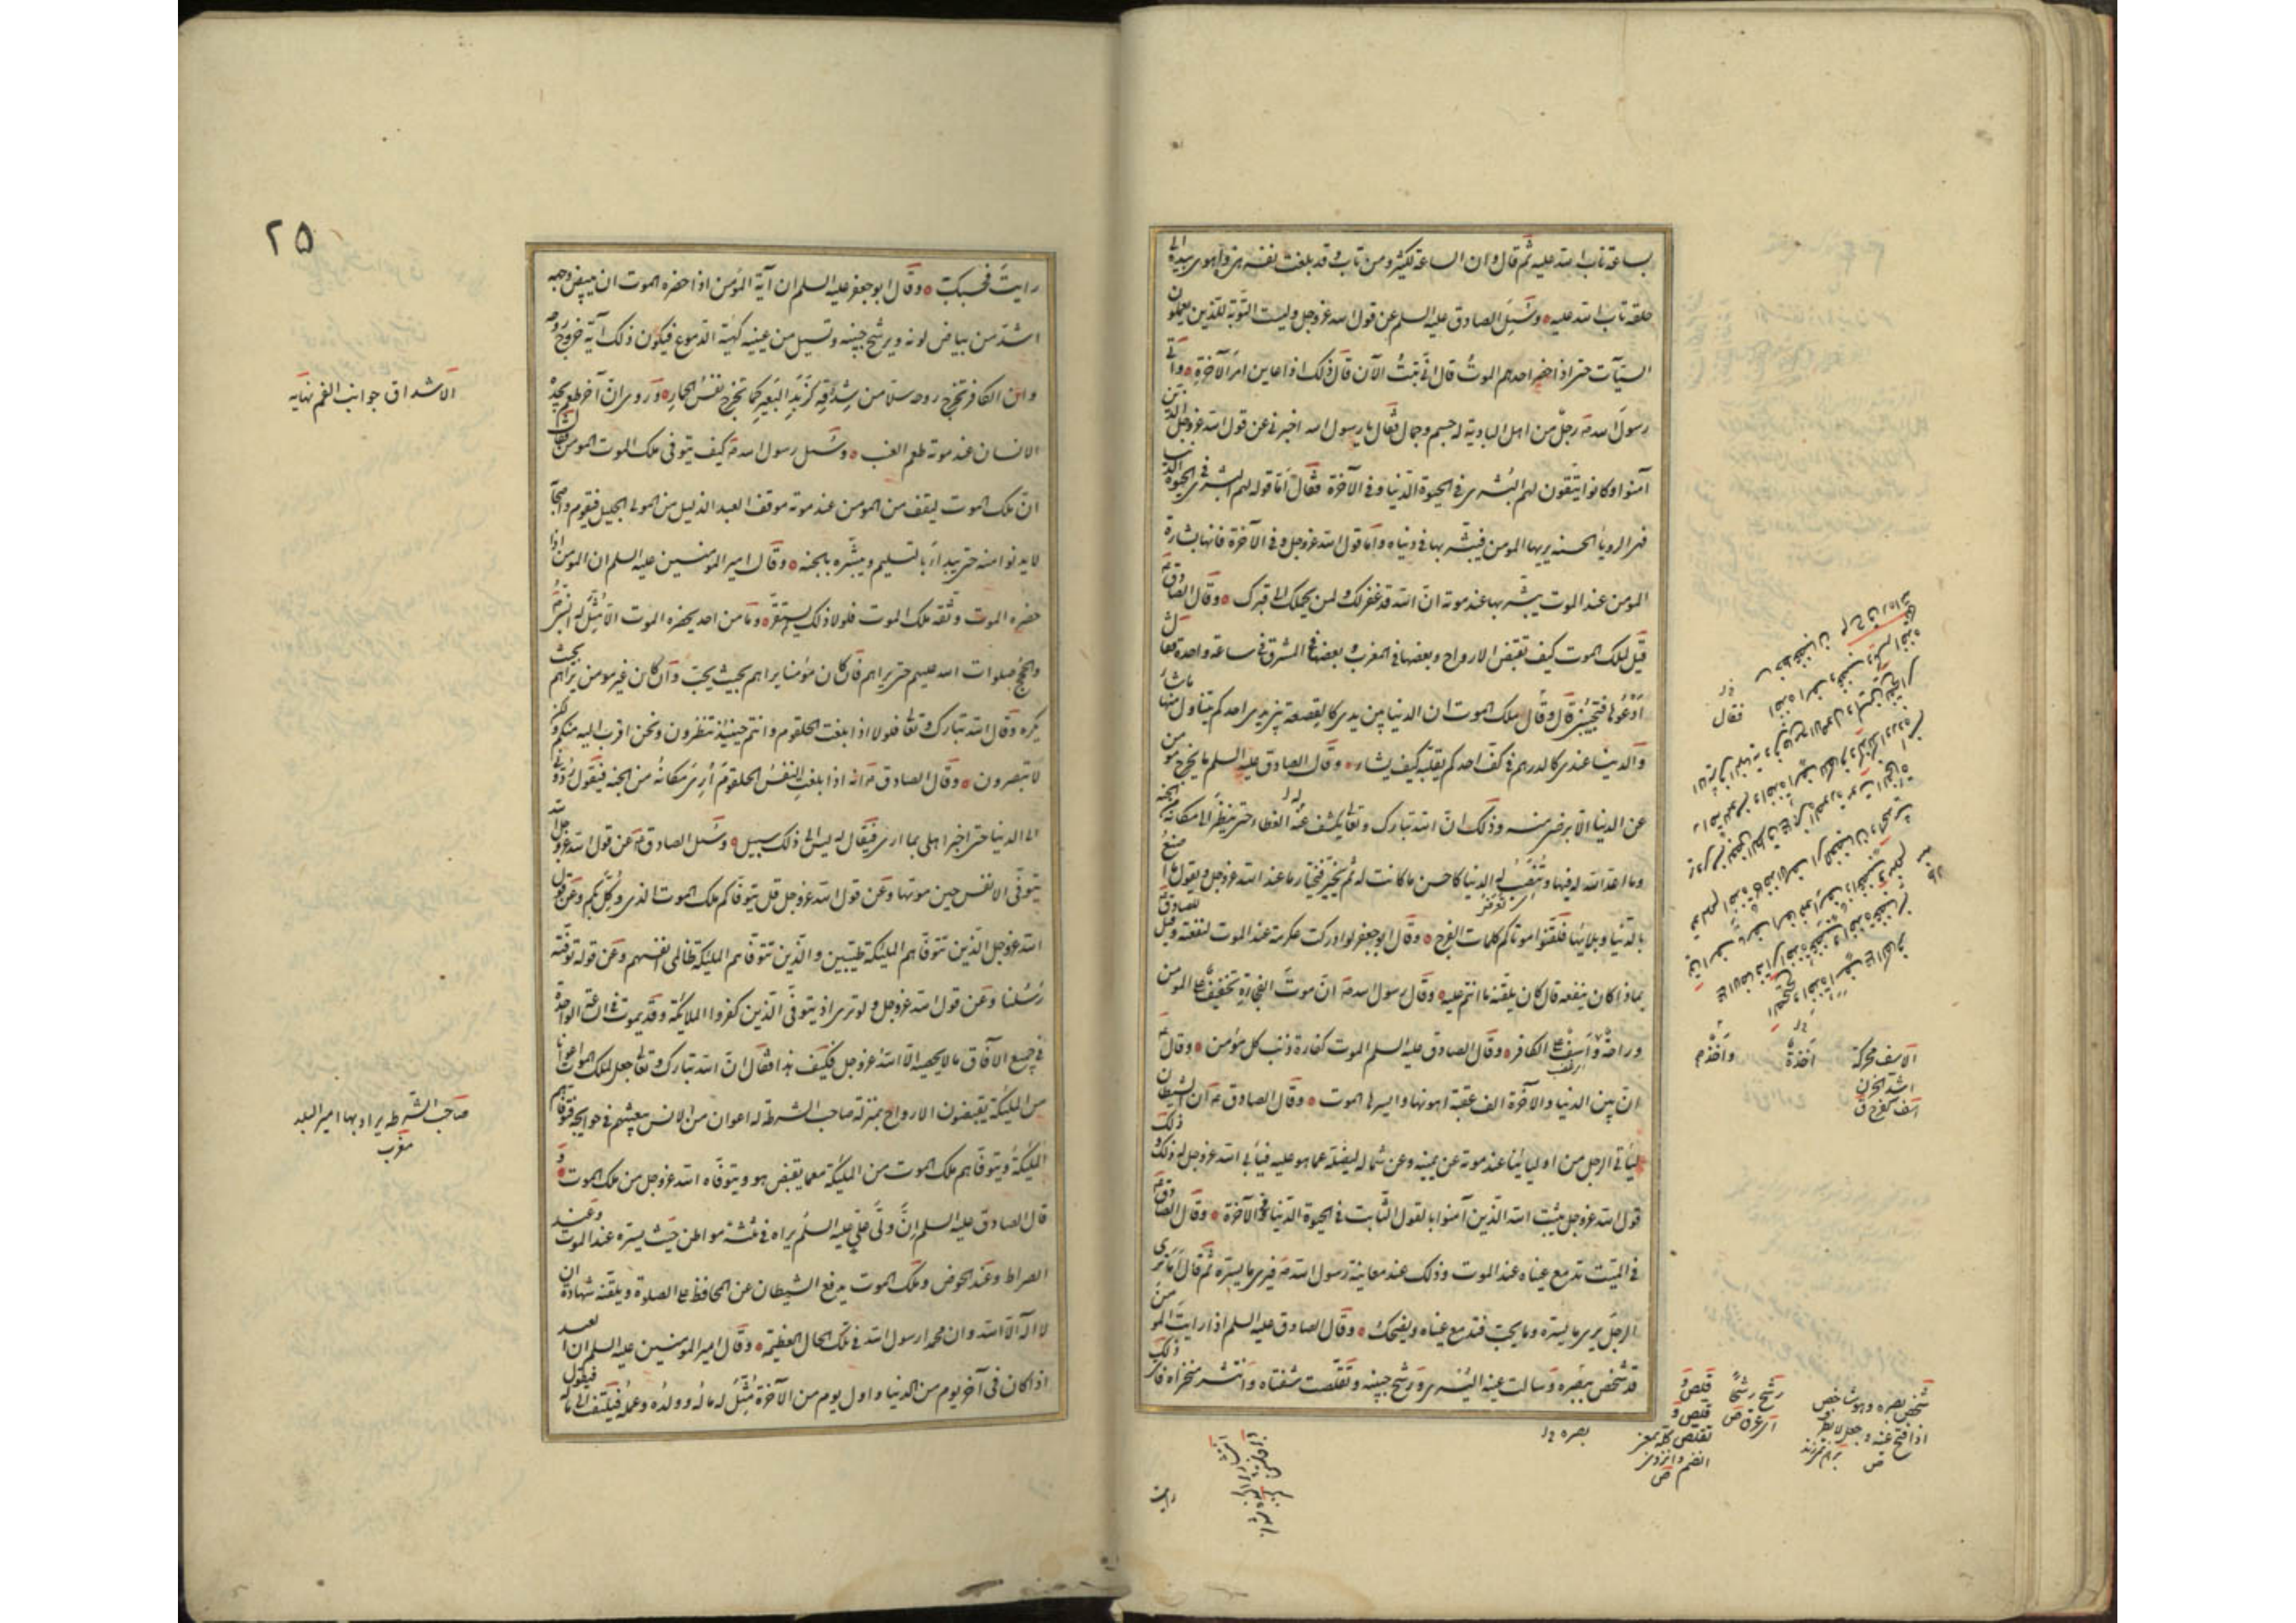 بساعة تاب الله عليه ثم قال وان الساعة لكثير ومن تاب وقد بلغت نفسه هذه واهوى بيده الى
حلقه تاب الله عليه وسئل الصادق عليه السلم عن قول الله عز وجل وليست التوبة للذين يعملون
السيآت حتى اذا حضر احدهم الموت قال انى تبت الآن قال ذلك اذا عاين امر الآخرة واتى
رسول الله ص رجل من اهل البادية له جسم وجمال فقال يا رسول الله اخبرنى عن قول الله عز وجل الذين
آمنوا وكانوا يتقون لهم البشرى فى الحيوة الدنيا وفى الآخرة فقال اما قوله لهم البشرى فى الحيوة الدنيا
فهى الرويا الحسنة يريها المومن فيبشر بها فى دنياه واما قول الله عز وجل وفى الآخرة فانها بشارة
المومن عند الموت يبشر بها عند موته ان الله قد غفر لك ولمن يحملك الى قبرك وقال الصادق ع
قيل لملك الموت كيف تقبض الارواح وبعضها فى المغرب وبعضها فى المشرق فى ساعة واحدة فقال
ادعوها فتجيبنى قال وقال ملك الموت ان الدنيا بين يدى كالقصعة بين يدى احدكم يتناول منها ما شاء
والدنيا عندى كالدرهم فى كف احدكم يقلبه كيف يشاء وقال الصادق عليه السلم ما يخرج مومن
عن الدنيا الا برضى منه وذلك ان الله تبارك وتعالى يكشف عنه الغطاء حتى ينظر الى مكانه من الجنة
وما اعد الله له فيها وتنصب له الدنيا كاحسن ما كانت له ثم يخير فيختار ما عند الله عز وجل ويقول ما اصنع
بالدنيا وبلائها فلقنوا موتاكم كلمات الفرج وقال ابو جعفر لو ادركت عكرمة عند الموت لنفعته وقيل للصادق ع
بماذا كان ينفعه قال كان يلقنه ما انتم عليه وقال رسول الله ص ان موت الفجاءة تخفيف على المومن
وراحة واسف على الكافر وقال الصادق عليه السلم الموت كفارة ذنب كل مؤمن وقال ع
ان بين الدنيا والآخرة الف عقبة اهونها وايسرها الموت وقال الصادق ع ان الشيطان
ليأتى الرجل من اوليائنا عند موته عن يمينه وعن شماله ليضله عما هو عليه فيأبى الله عز وجل له ذلك وذلك
قول الله عز وجل يثبت الله الذين آمنوا بالقول الثابت فى الحيوة الدنيا وفى الآخرة وقال الصادق ع
فى الميت تدمع عيناه عند الموت وذلك عند معاينة رسول الله ص فيرى ما يسره ثم قال اما ترى
الرجل يرى ما يسره وما يحب فتدمع عيناه ويضحك وقال الصادق عليه السلم اذا رايت المومن
قد شخص ببصره وسالت عينه اليسرى ورشح جبينه وتقلصت شفتاه وانتشر منخراه فاى ذلك
الاسف محركة
اشد الحزن
اسف كفرح ق
شخص بصره وهو شاخص
اذا فتح عينه وجعل لا يطرف
ص
رشح رشحا
اى عرق ص
قلص و
قلص و
تقلص كله بمعنى
انضم وانزوى
ص
بصره خ ل
رايت
٢٥
رايت فحسبك وقال ابو جعفر عليه السلم ان آية المؤمن اذا حضره الموت ان يبيض وجهه
اشد من بياض لونه ويرشح جبينه وتسيل من عينيه كهيئة الدموع فيكون ذلك آية خروج روحه
وان الكافر تخرج روحه سلا من شدقه كزبد البعير كما تخرج نفس الحمار وروى ان آخر طعم يجده
الانسان عند موته طعم العنب وسئل رسول الله ص كيف يتوفى ملك الموت المومن فقال
ان ملك الموت ليقف من المومن عند موته موقف العبد الذليل من المولى الجليل فيقوم واصحابه
لا يدنوا منه حتى يبدأه بالتسليم ويبشره بالجنة وقال امير المومنين عليه السلم ان المومن اذا
حضره الموت وثقه ملك الموت فلولا ذلك لم يستقر وما من احد يحضره الموت الا مثل له النبى ص
والحجج صلوات الله عليهم حتى يراهم فان كان مؤمنا يراهم بحيث يحب وان كان غير مومن يراهم بحيث
يكره وقال الله تبارك وتعالى فلولا اذا بلغت الحلقوم وانتم حينئذ تنظرون ونحن اقرب اليه منكم ولكن
لا تبصرون وقال الصادق ع انه اذا بلغت النفس الحلقوم ارى مكانه من الجنة فيقول ردونى
الى الدنيا حتى اخبر اهلى بما ارى فيقال له ليس الى ذلك سبيل وسئل الصادق ع عن قول الله عز وجل الله
يتوفى الانفس حين موتها وعن قول الله عز وجل قل يتوفاكم ملك الموت الذى وكل بكم وعن قول
الله عز وجل الذين تتوفاهم المليكة طيبين والذين تتوفاهم المليكة ظالمى انفسهم وعن قوله توفته
رسلنا وعن قول الله عز وجل ولو ترى اذ يتوفى الذين كفروا الملائكة وقد يموت فى الساعة الواحدة
فى جميع الآفاق ما لا يحصيه الا الله عز وجل فكيف هذا فقال ان الله تبارك وتعالى جعل لملك الموت اعوانا
من المليكة يقبضون الارواح بمنزلة صاحب الشرطة له اعوان من الانس يبعثهم فى حوايجه فتوفاهم
المليكة ويتوفاهم ملك الموت من المليكة مع ما يقبض هو ويتوفاه الله عز وجل من ملك الموت و
قال الصادق عليه السلم ان ولى على عليه السلم يراه فى ثلثة مواطن حيث يسره عند الموت وعند
الصراط وعند الحوض وملك الموت يدفع الشيطان عن المحافظ على الصلوة ويلقنه شهادة ان
لا اله الا الله وان محمدا رسول الله فى تلك الحال العظيمة وقال امير المومنين عليه السلم ان العبد
اذا كان فى آخر يوم من الدنيا واول يوم من الآخرة مثل له ماله وولده وعمله فيلتفت الى ماله فيقول
الاشداق جوانب الفم نهايه
صاحب الشرطه يراد بها امير البلد
مغرب